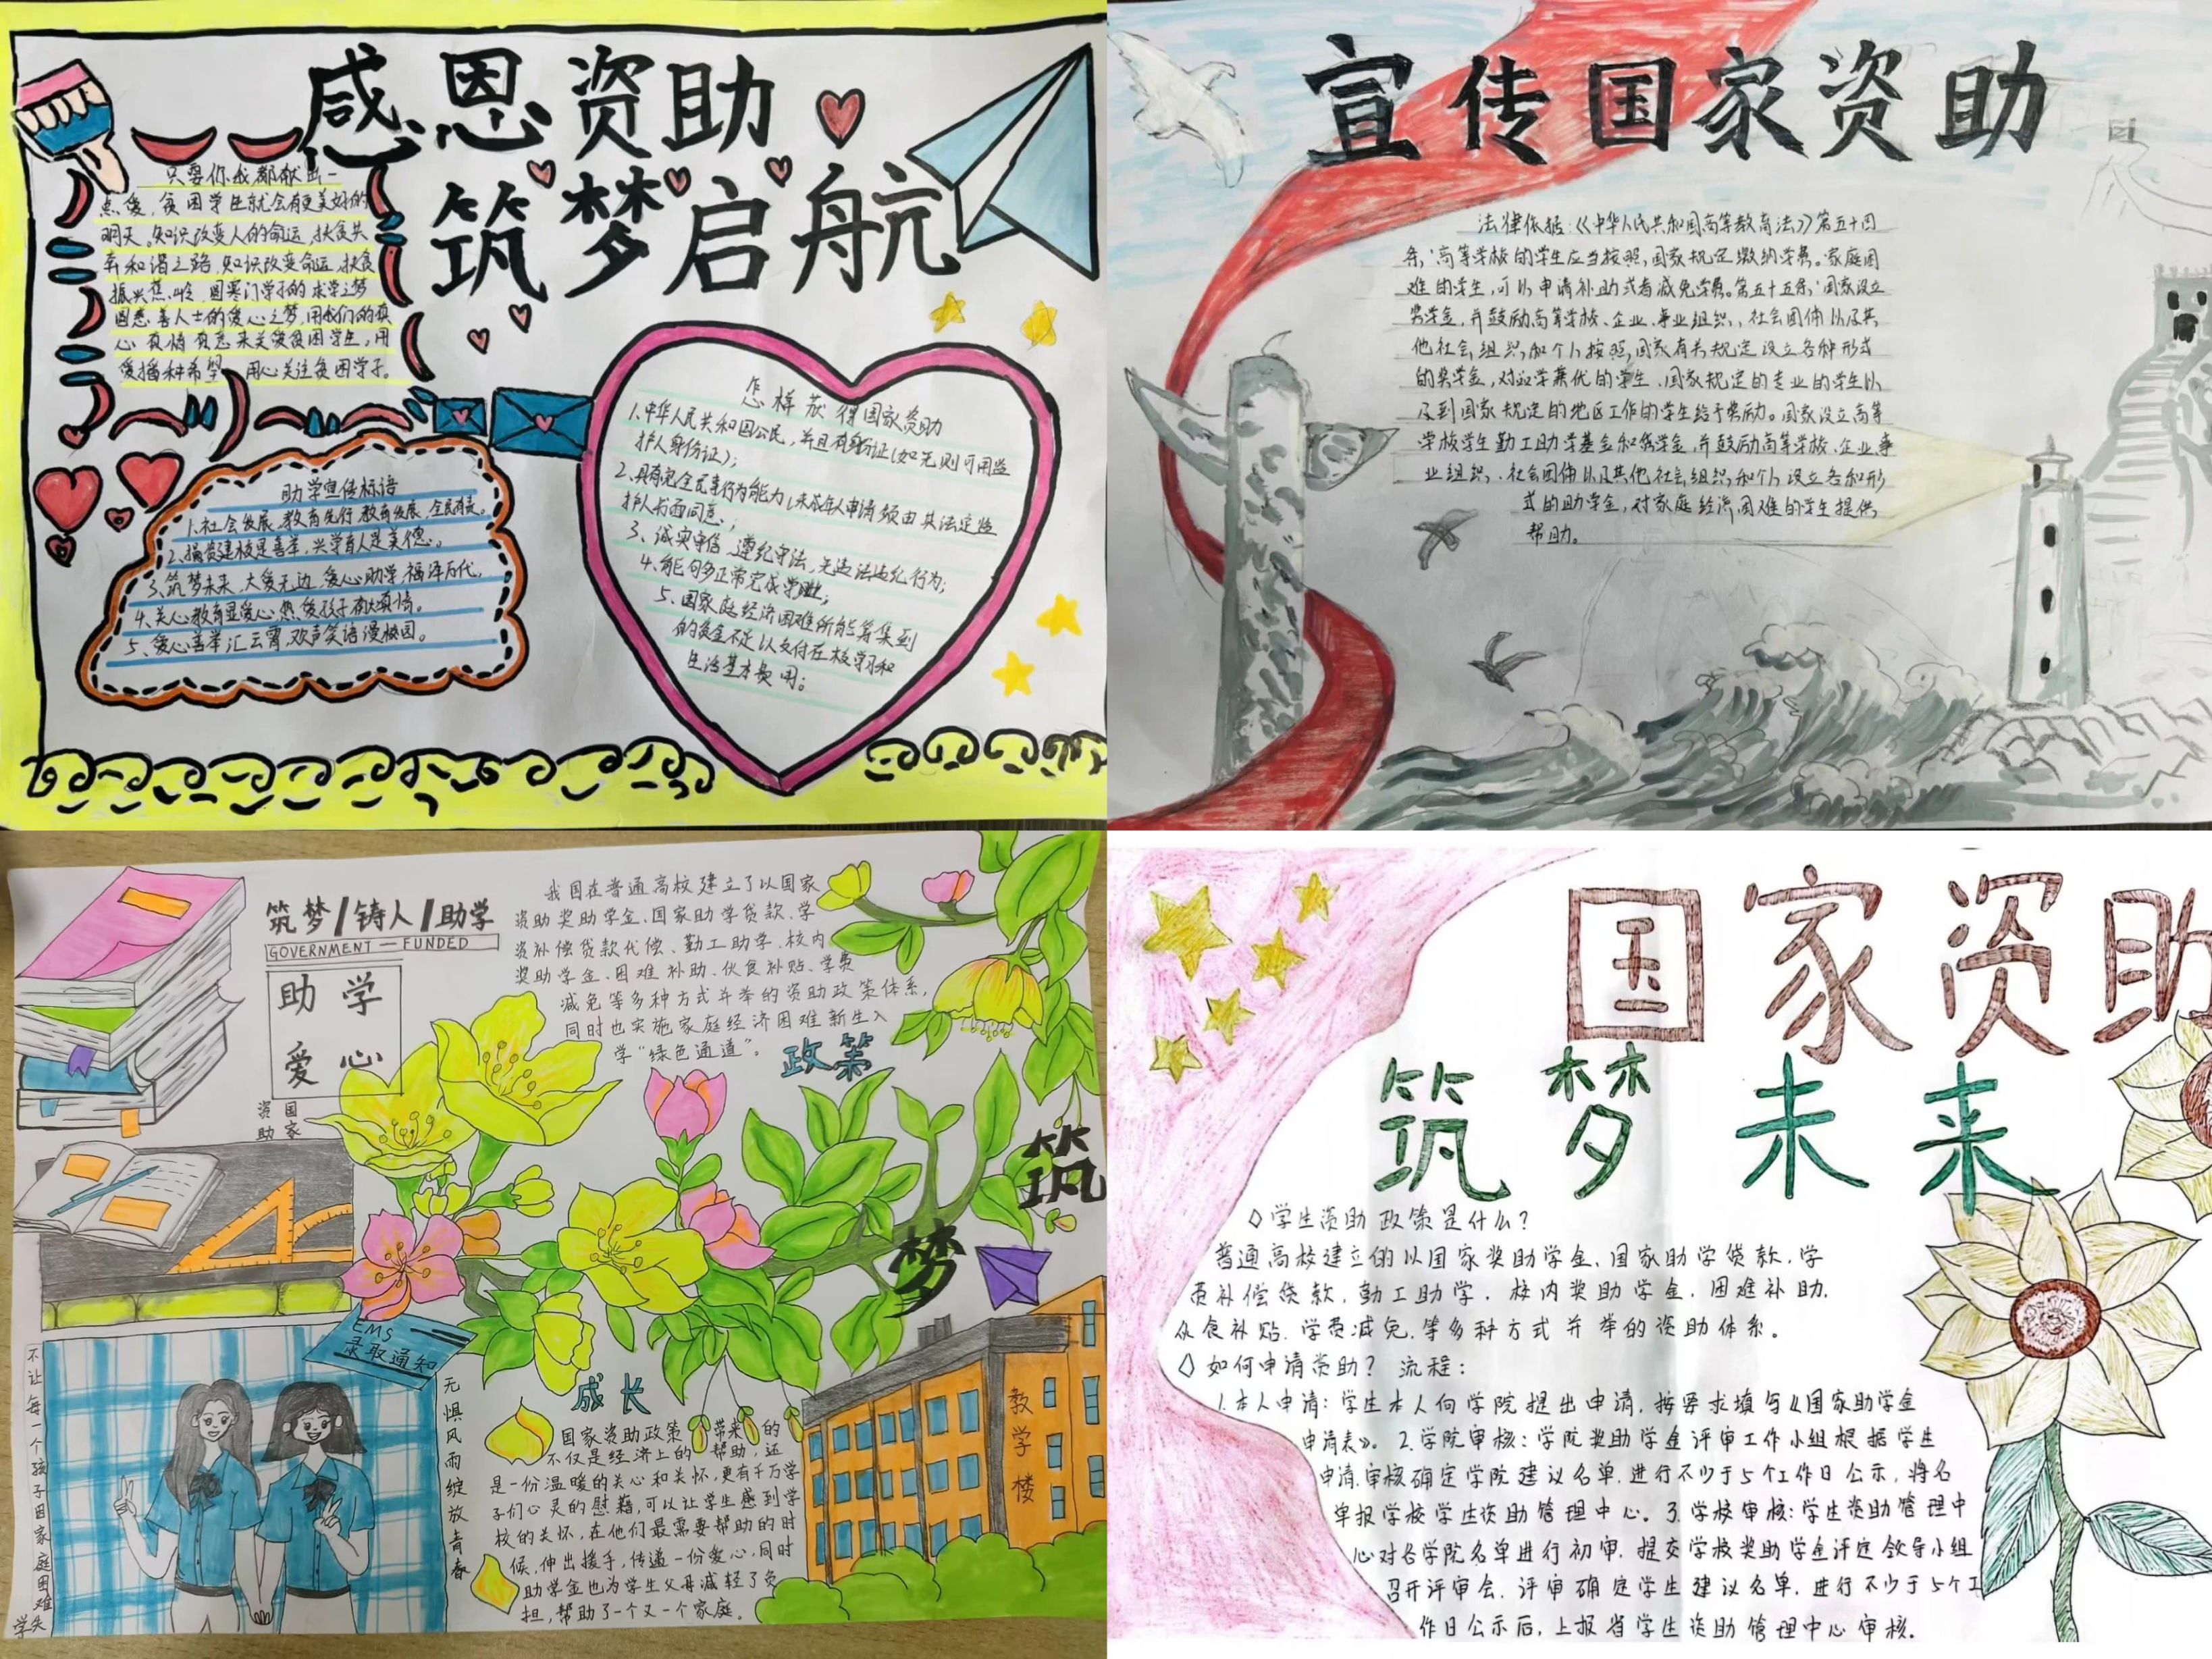 感恩资助
筑梦启航
只要你我都献出一
点爱，贫困学生就会有更美好的
明天。知识改变人的命运，扶贫共
奔和谐之路，知识改变命运，扶贫
振兴蕉岭，圆寒门学子的求学之梦
圆慈善人士的爱心之梦，用我们的真
心真情真意来关爱贫困学生，用
爱播种希望，用心关注贫困学子。
助学宣传标语
1.社会发展，教育先行，教育发展，全民有责。
2.捐资建校是善举，兴学育人是美德。
3、筑梦未来，大爱无边，爱心助学，福泽万代。
4.关心教育显爱心，热爱孩子献真情。
5、爱心善举汇云霄，欢声笑语漫校园。
怎样获得国家资助
1.中华人民共和国公民，并且有身份证（如无则可用监
护人身份证）；
2.具有完全民事行为能力（未成年人申请须由其法定监
护人书面同意；
3、诚实守信，遵纪守法，无违法违纪行为；
4.能句多正常完成学业；
5、国家庭经济困难所能筹集到
的资金不足以支付在校学习和
生活基本费用。
宣传国家资助
法律依据：《中华人民共和国高等教育法》第五十四
条，高等学校的学生应当按照，国家规定缴纳学费。家庭困
难的学生，可以申请补助或者减免学费。第五十五条，国家设立
奖学金，并鼓励高等学校、企业、事业组织、社会团体以及其
他社会组织和个人按照，国家有关规定设立各种形式
的奖学金，对品学兼优的学生、国家规定的专业的学生以
及到国家规定的地区工作的学生给予奖励。国家设立高等
学校学生勤工助学基金和贷学金，并鼓励高等学校、企业事
业组织、社会团体以及其他社会组织和个人设立各种形
式的助学金，对家庭经济困难的学生提供
帮助。
筑梦/铸人/助学
GOVERNMENT—FUNDED
助学
爱心
国家
资助
我国在普通高校建立了以国家
资助奖助学金、国家助学贷款、学
资补偿贷款代偿、勤工助学、校内
奖助学金、困难补助、伙食补贴、学费
减免等多种方式并举的资助政策体系，
同时也实施家庭经济困难新生入
学“绿色通道”。
政策
筑
梦
EMS
录取通知
不让每一个孩子因家庭困难失学
无惧风雨绽放青春
成长
国家资助政策带来的
不仅是经济上的帮助，还
是一份温暖的关心和关怀，更有千万学
子们心灵的慰藉，可以让学生感到学
校的关怀，在他们最需要帮助的时
候，伸出援手，传递一份爱心，同时
助学金也为学生父母减轻了负
担，帮助了一个又一个家庭。
教学楼
国家资助
筑梦未来
◇学生资助政策是什么？
普通高校建立的以国家奖助学金、国家助学贷款、学
费补偿贷款、勤工助学、校内奖助学金、困难补助、
伙食补贴、学费减免、等多种方式并举的资助体系。
◇如何申请资助？流程：
1.本人申请：学生本人向学院提出申请，按要求填写《国家助学金
申请表》。2.学院审核：学院奖助学金评审工作小组根据学生
申请，审核确定学院建议名单，进行不少于5个工作日公示，将名
单报学校学生资助管理中心。3.学校审核：学生资助管理中
心对各学院名单进行初审，提交学校奖助学金评定领导小组
召开评审会，评审确定学生建议名单，进行不少于5个工
作日公示后，上报省学生资助管理中心审核。